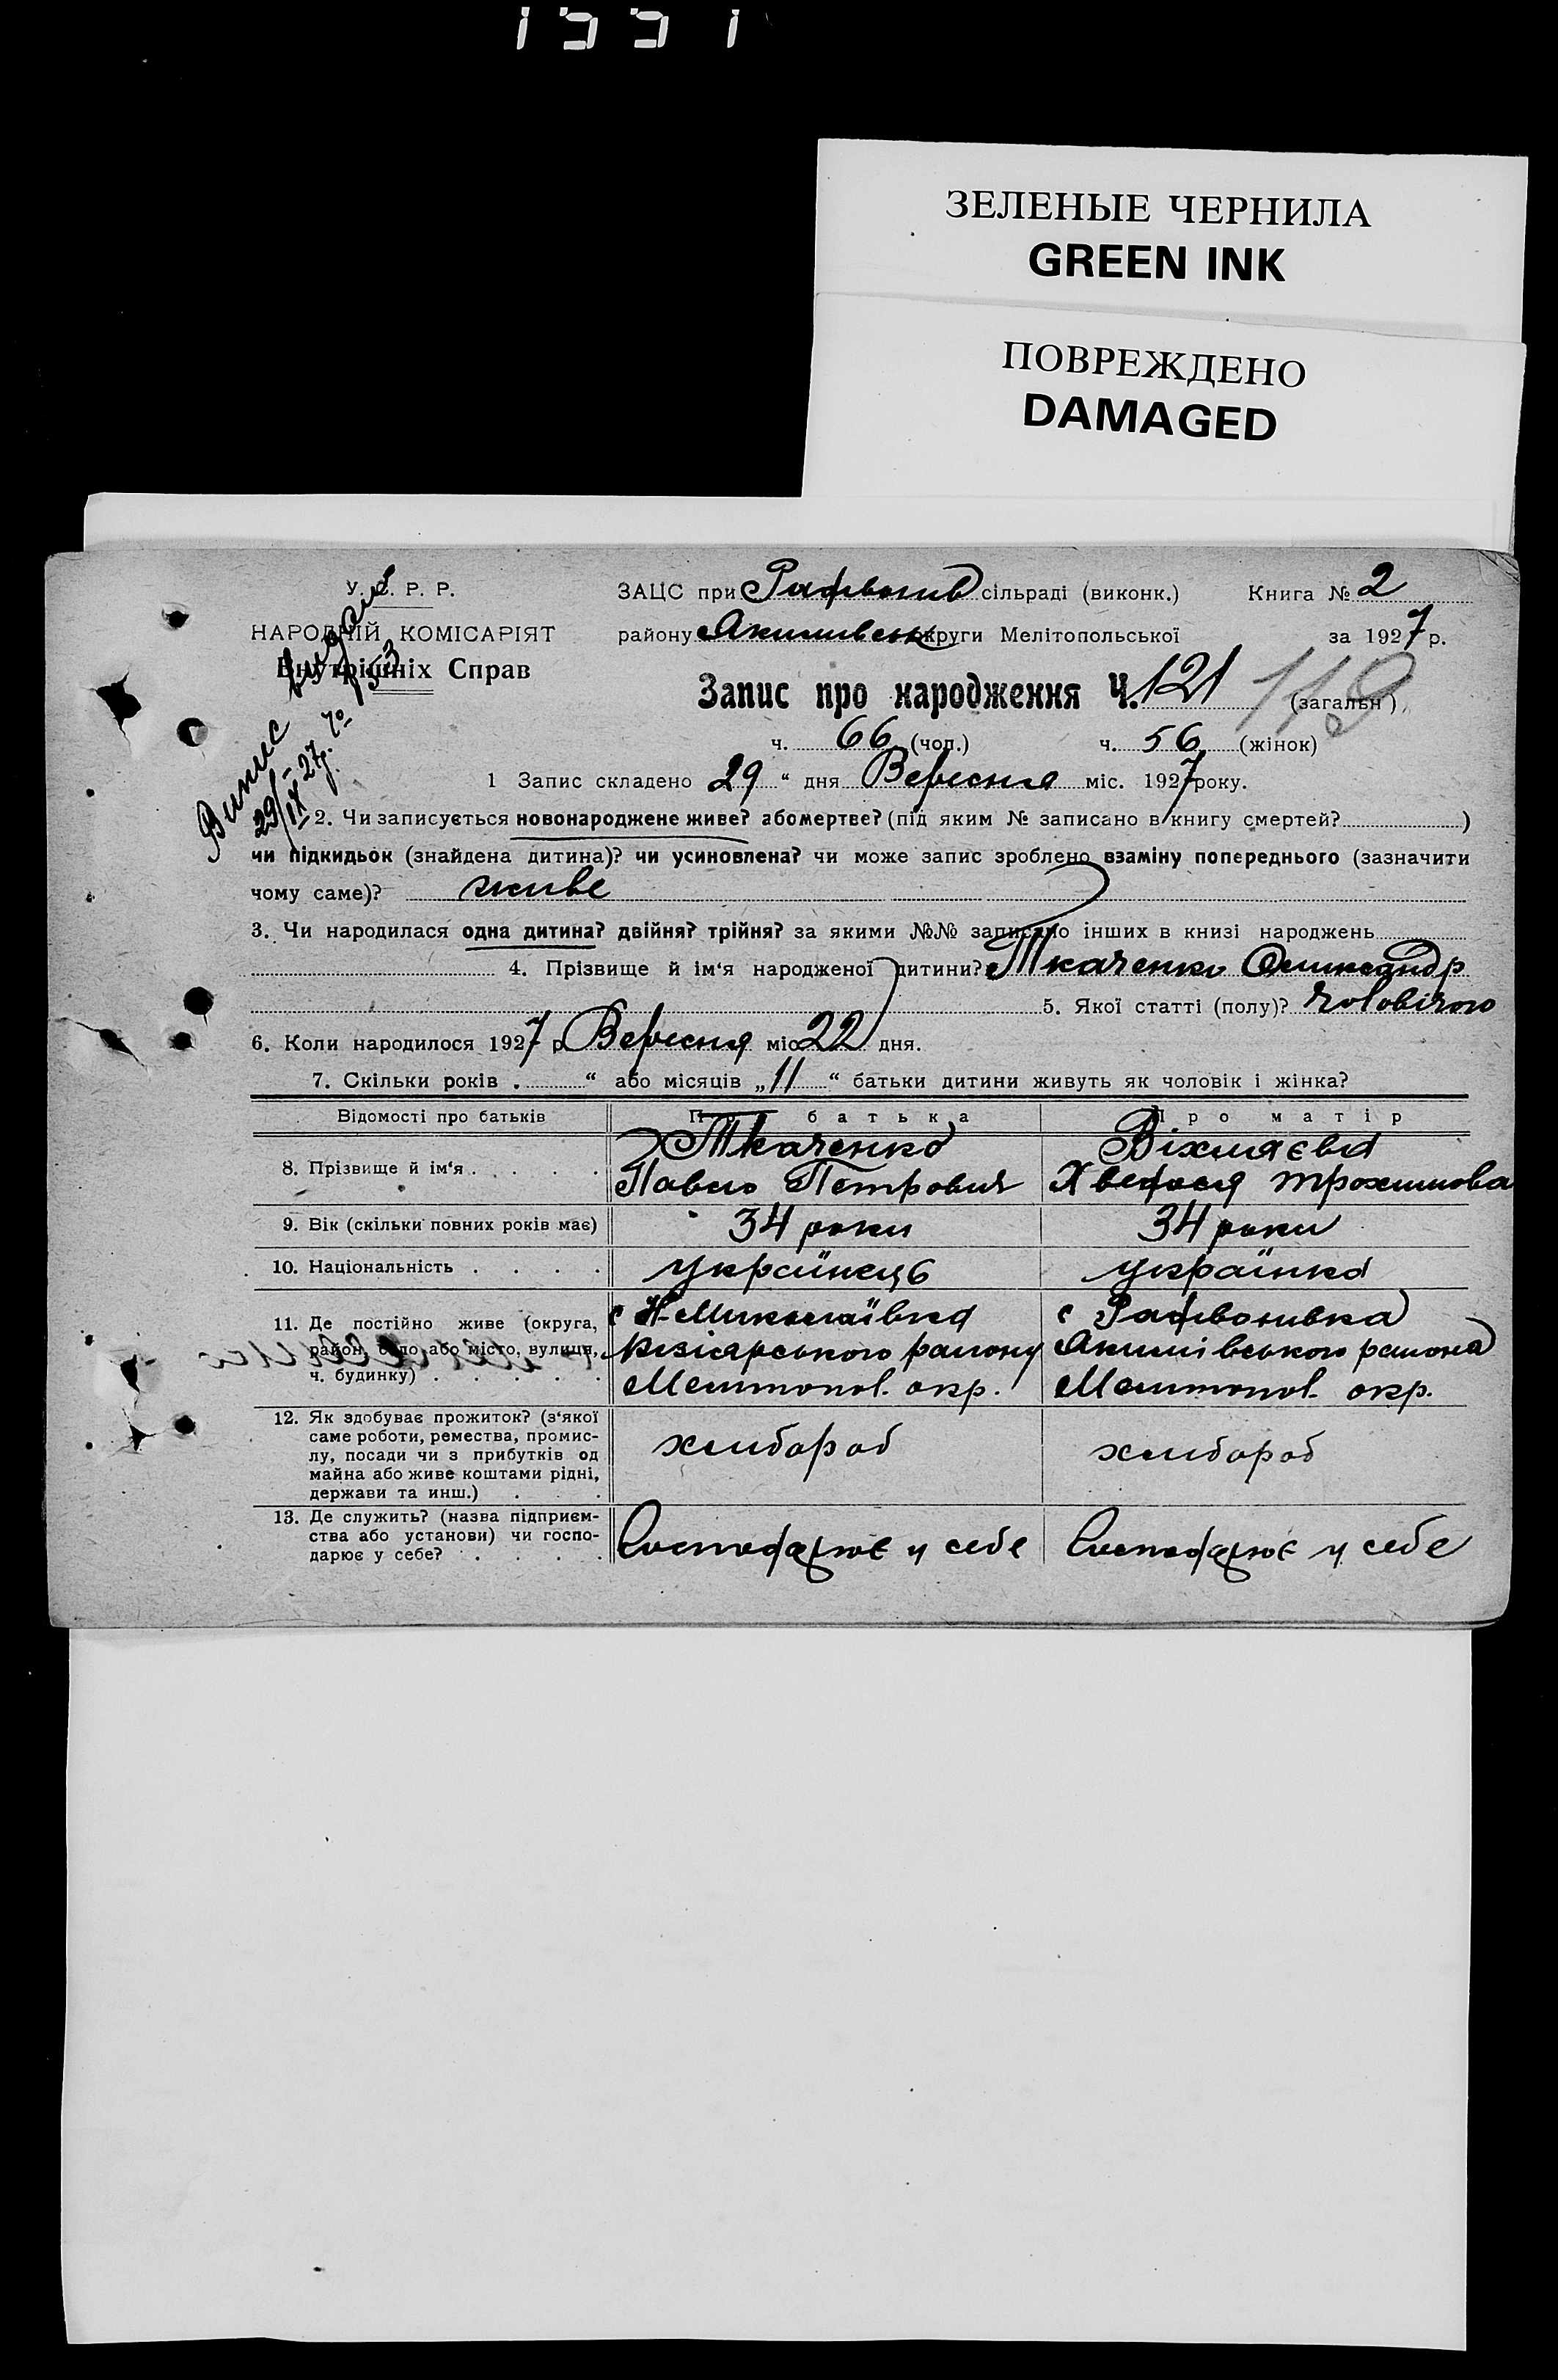 1551
ЗЕЛЕНЫЕ ЧЕРНИЛА
GREEN INK
ПОВРЕЖДЕНО
DAMAGED
У. С. Р. Р.
НАРОДНІЙ КОМІСАРІЯТ
Внутрішніх Справ
Випис видано
29/IX-27р. №153
ЗАЦС при Рафвонив сільраді (виконк.) Книга № 2
району Якимивськ округи Мелітопольської за 1927 р.
Запис про народження Ч. 121 119 (загальн)
ч. 66 (чол.) ч. 56 (жінок)
1 Запис складено 29 “ дня Вересня міс. 1927 року.
2. Чи записується новонароджене живе? або мертве? (під яким № записано в книгу смертей? )
чи підкидьок (знайдена дитина)? чи усиновлена? чи може запис зроблено взаміну попереднього (зазначити
чому саме)? живе
3. Чи народилася одна дитина? двійня? трійня? за якими №№ записано інших в книзі народжень
4. Прізвище й ім‘я народженої дитини? Ткаченко Олександр
5. Якої статті (полу)? чоловічого
6. Коли народилося 1927 р. Вересня міс 22 дня.
7. Скільки років . “ або місяців „11“ батьки дитини живуть як чоловік і жінка?
Відомості про батьків Про батька Про матір
8. Прізвище й ім‘я . . . . Ткаченко Павло Петрович Віхляєва Хведося Трохимова
9. Вік (скільки повних років має) 34 роки 34 роки
10. Національність . . . . українець українка
11. Де постійно живе (округа, район, село або місто, вулиця, ч. будинку) . . . . . с Н-Миколаївка Кизіярського району Мелитопол. окр. с Рафвонивка Якимівського района Мелитопол. окр.
12. Як здобуває прожиток? (з‘якої саме роботи, ремества, промислу, посади чи з прибутків од майна або живе коштами рідні, держави та инш.) . . . хлибороб хлибороб
13. Де служить? (назва підприємства або установи) чи господарює у себе? . . . . Господарює у себе Господарює у себе